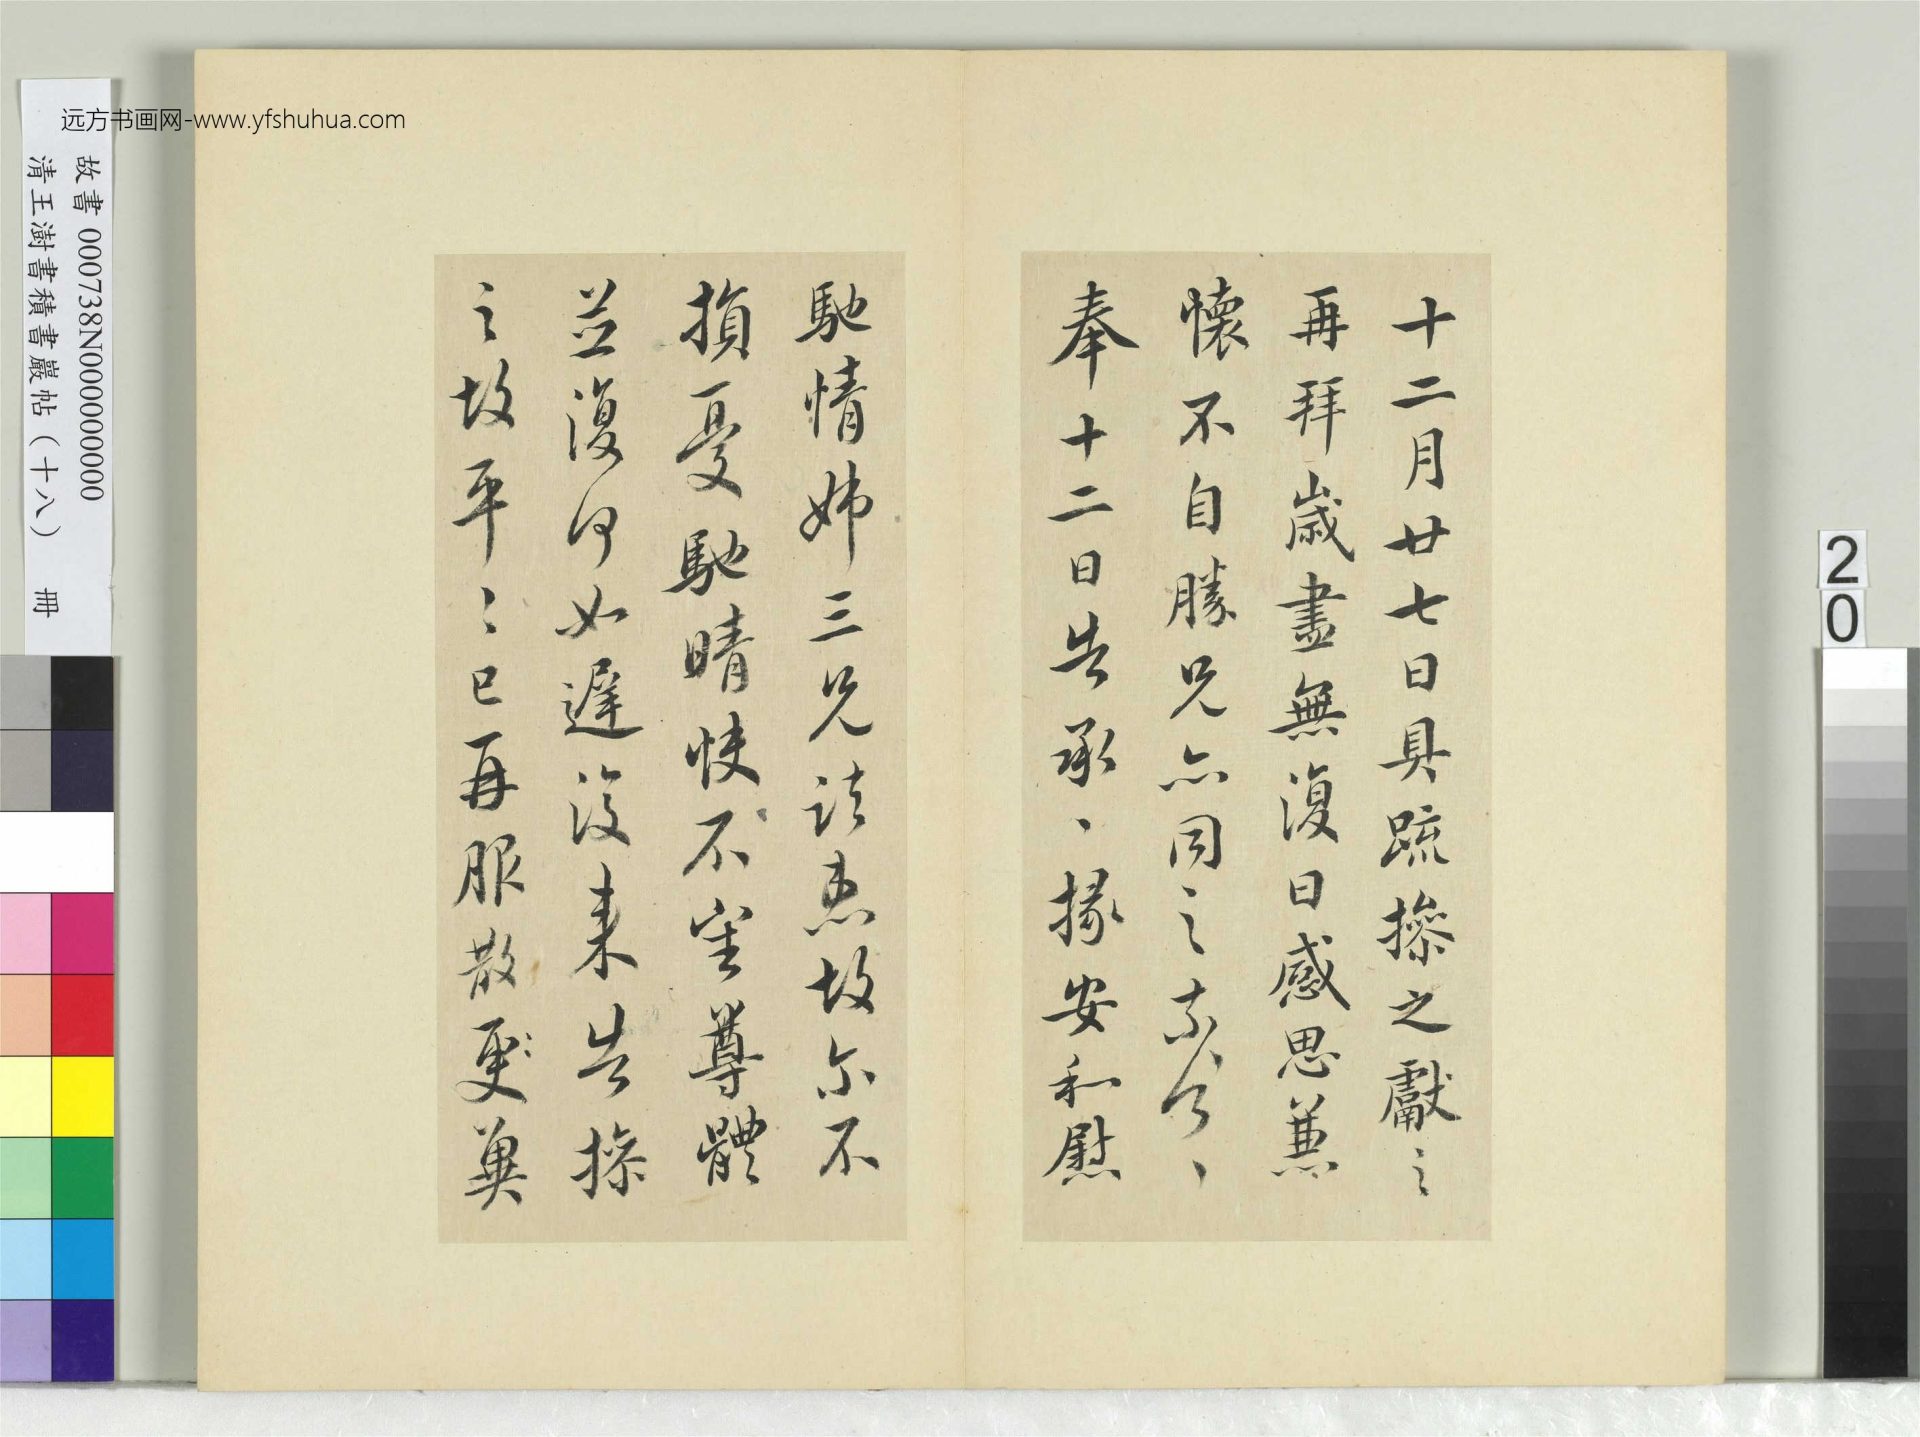 十二月廿七日具疏操之獻之
再拜歲盡無復日感思兼
懷不自勝兄亦同之
奉十二日告承、掾安和慰
馳情姊三兄諸患故爾不
損憂馳晴快不審尊體
並復何如遲復來告操
之故平〻已再服散更冀
远方书画网-www.yfshuhua.com
故書 000738N000000000
清王澍書積書巖帖(十八) 冊
20